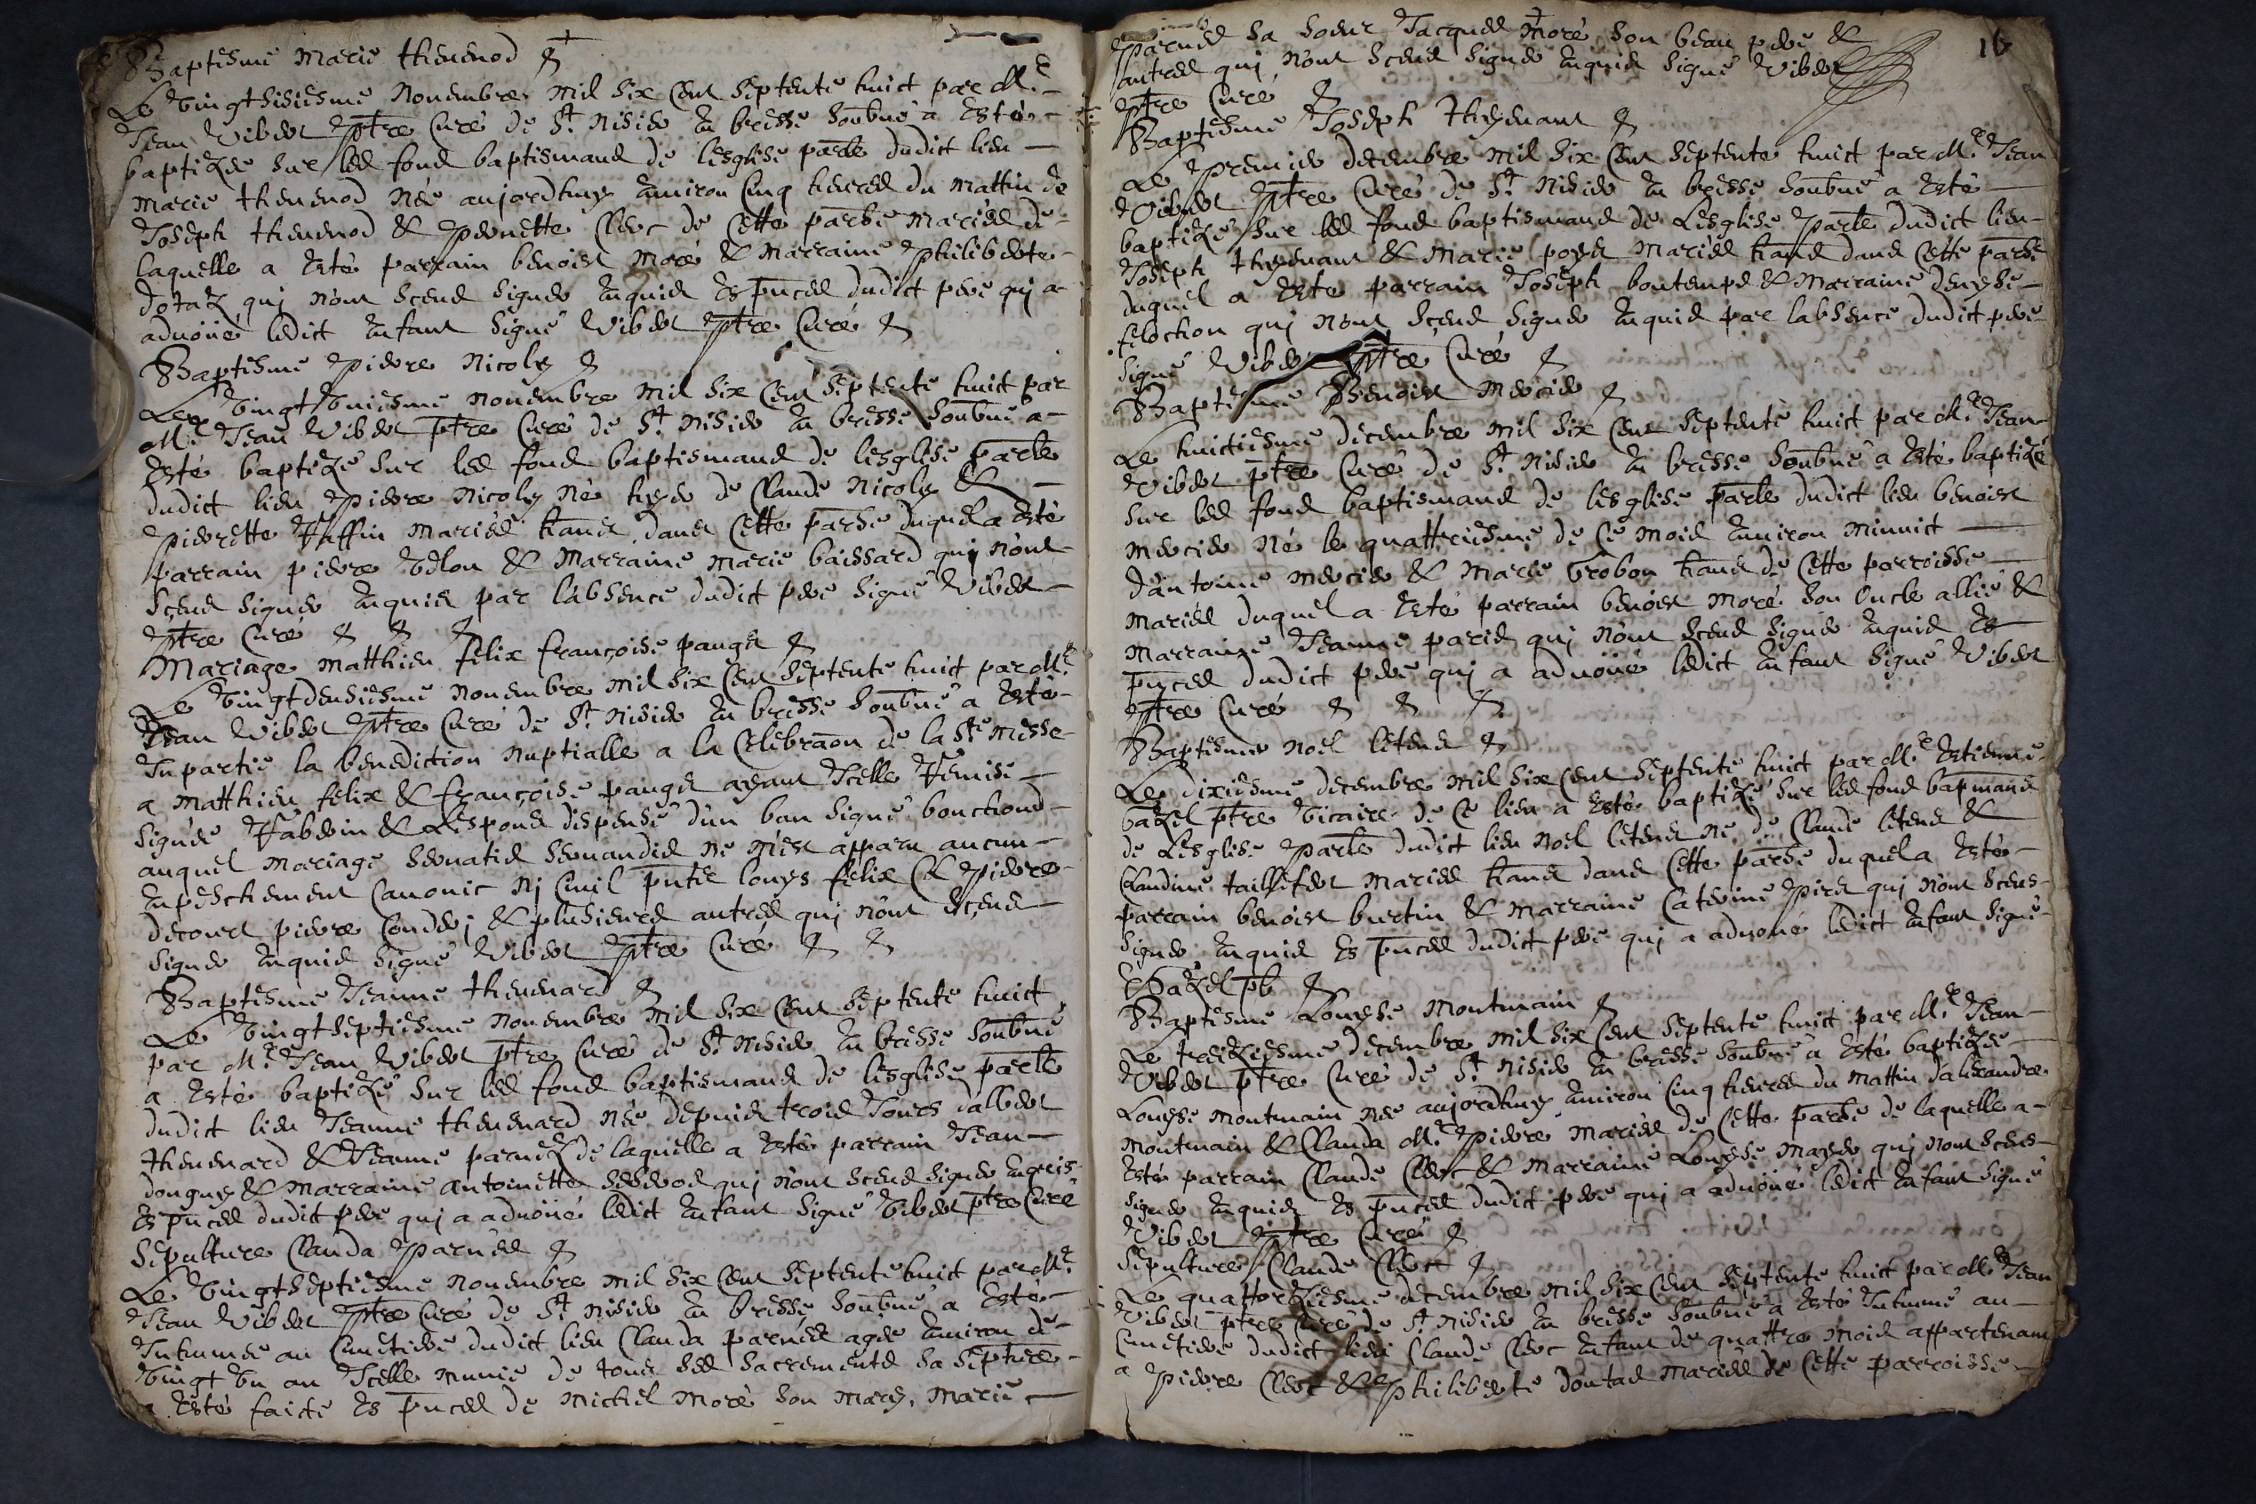 Baptesme marie thevenod
Le vingtsisiesme novembre mil six cent septente huict par Mre
Jean Vibert ptre curé de St Nisier en bresse soubné a esté
baptizée sur les fond baptismaud de lesglise parle dudict lieu
marie thevenod née aujordhuy environ cinq heures du mattin de
Joseph thevenod & pernette Clerc de cette parse mariés de
laquelle a esté parrain benoist moré & marraine philiberte
dotaz qui nont sceus signer enquis es pnces dudict pere qui a
advoüé ledict enfant signé Vibert ptre curé
Baptesme pierre nicoly
Le vingt huiesme novembre mil six cent septente huict par
Mre Jean Vibert ptre curé de St nisier en bresse soubné a
esté baptizé sur les fond baptismaud de lesglise parle
dudict lieu pierre nicoly né hyer de Claude nicoly &
pierrette mariés hans dans cette parse duquel a esté
parrain pierre & marraine marie baissard qui nont
sceus signer enquis par labsence dudict pere signé Vibert
ptre curé
Mariage matthieu felix françoise pauget
Le vingtdeusiesme novembre mil six cent septente huict par Mre
Jean Vibert ptre curé de St Nisier en bresse soubné a esté
Jnpartie la benediction nuptialle a la celebraon de la Ste messe
a matthieu felix & françoise pauget ayant Jcelle remise
signée & respond dispense dun ban signé bouchond
auquel mariage servatis servandis ne mest apparu aucun
enpeschement canonic nj civil pntes louys felix & pierre
decourt pierre & plusieurs autres qui nont sceus
signer enquis signé Vibert ptre curé
Baptesme Jeanne thevenard
Le vingtseptiesme novembre mil six cent septente huict
par Mre Jean Vibert ptre curé de St nisier en bresse soubné
a esté baptizé sur les fond baptismaud de lesglise parle
dudict lieu Jeanne thevenard née depuis trois Jours dalbert
thevenard & Jeanne parnez de laquelle a esté parrain Jean
donguy & marraine antoinette qui nont sceus signer enquis
es pnces dudict pere qui a advoüé ledict enfant signé Vibert ptre curé
Sepulture Clauda parnés
Le vingtseptiesme novembre mil six cent septente huict par Mre
Jean Vibert ptre curé de St nisier en bresse soubné a esté
Jnhumée au cimetiere dudict lieu Clauda parnés agée environ de
vingt un an Jcelle munie de tous ses sacrements sa sepulture
a esté faicte es pnces de michel moré son mary, marie
16
parnés sa soeur Jacques moré son beau pere &
autres qui nont sceus signer enquis signé Vibert
ptre curé
Baptesme Joseph thyvenant
Le premier decembre mil six cent septente huict par Mre Jean
Vibert ptre curé de St nisier en bresse soubné a esté
baptizé sur les fond baptismaud de Lesglise parle dudict lieu
Joseph thyvenant & marie mariés hans dans cette parse
duquel a esté parrain Joseph bontemps & marraine denyse
flochon qui nont sceus signer enquis par labsence dudict pere
signé Vibert ptre curé
Baptesme Benoist mercier
Le huictiesme decembre mil six cent septente huict par Mre Jean
Vibert ptre curé de St nisier en bresse soubné a esté baptizé
sur les fond baptismaud de lesglise parle dudict lieu benoist
mercier né le quattriesme de ce mois environ minuict
dantoine mercier & marie Grobon hans de cette parroisse
mariés duquel a esté parrain benoist moré son oncle allié &
marraine Jeanne paris qui nont sceus signer enquis es
pnces dudict pere qui a advoüé ledict enfant signé Vibert
ptre curé
Baptesme noel leteus
Le dixiesme decembre mil six cent septente huict par Mre estienne
bazel ptre vicaire de ce lieu a esté baptizé sur les fond bapmaud
de Lesglise parle dudict lieu noel leteus né de Claude leteus &
Claudine taillifert mariés hans dans cette parse duquel a esté
parrain benoist burtin & marraine Caterine qui nont sceus
signer enquis es pnces dudict pere qui a advoué ledict enfant signé
EBazel pb
Baptesme Louyse montmain
Le treiziesme decembre mil six cent septente huict par Mre Jean
Vibert ptre curé de St nisier en bresse soubné a esté baptizée
Louyse montmain née aujordhuy environ cinq heures du mattin dalexandre
montmain & Clauda Mre pierre mariés de cette parse de laquelle a
esté parrain Claude Clerc & marraine Louyse mayer qui nont sceus
signer enquis es pnces dudict pere qui a advoüé ledict enfant signé
Vibert ptre curé
Sepulture Claude Clerc
Le quattorziesme decembre mil six cent septente huict par Mre Jean
Vibert ptre curé de St nisier en bresse soubné a esté Jnhumé au
cimetiere dudict lieu Claude Clerc enfant de quattre mois appartenant
a pierre Clerc & philiberte doutad mariés de cette parroisse